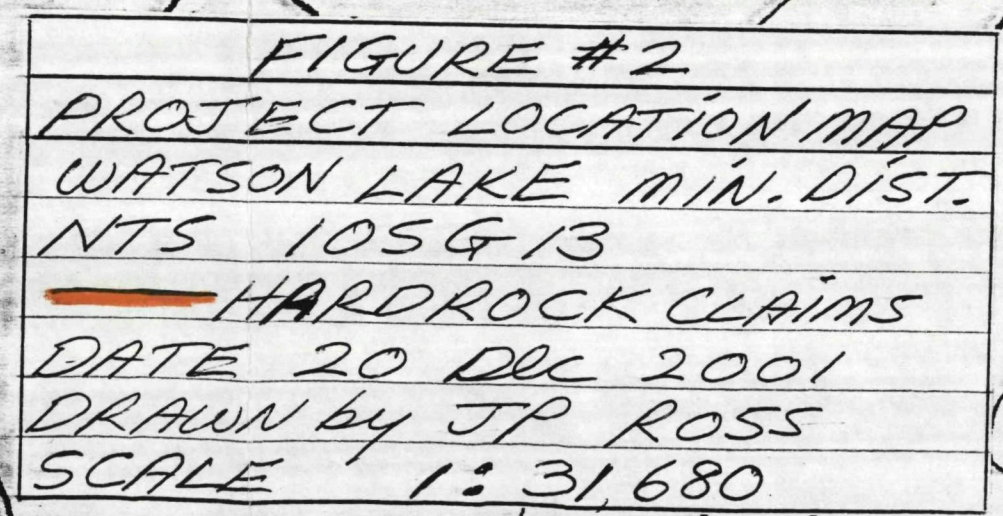 FIGURE #2
PROJECT LOCATION MAP
WATSON LAKE MIN. DIST.
NTS 105G-13
HARDROCK CLAIMS
DATE 20 Dec 2001
DRAWN by JP ROSS
SCALE 1: 31,680